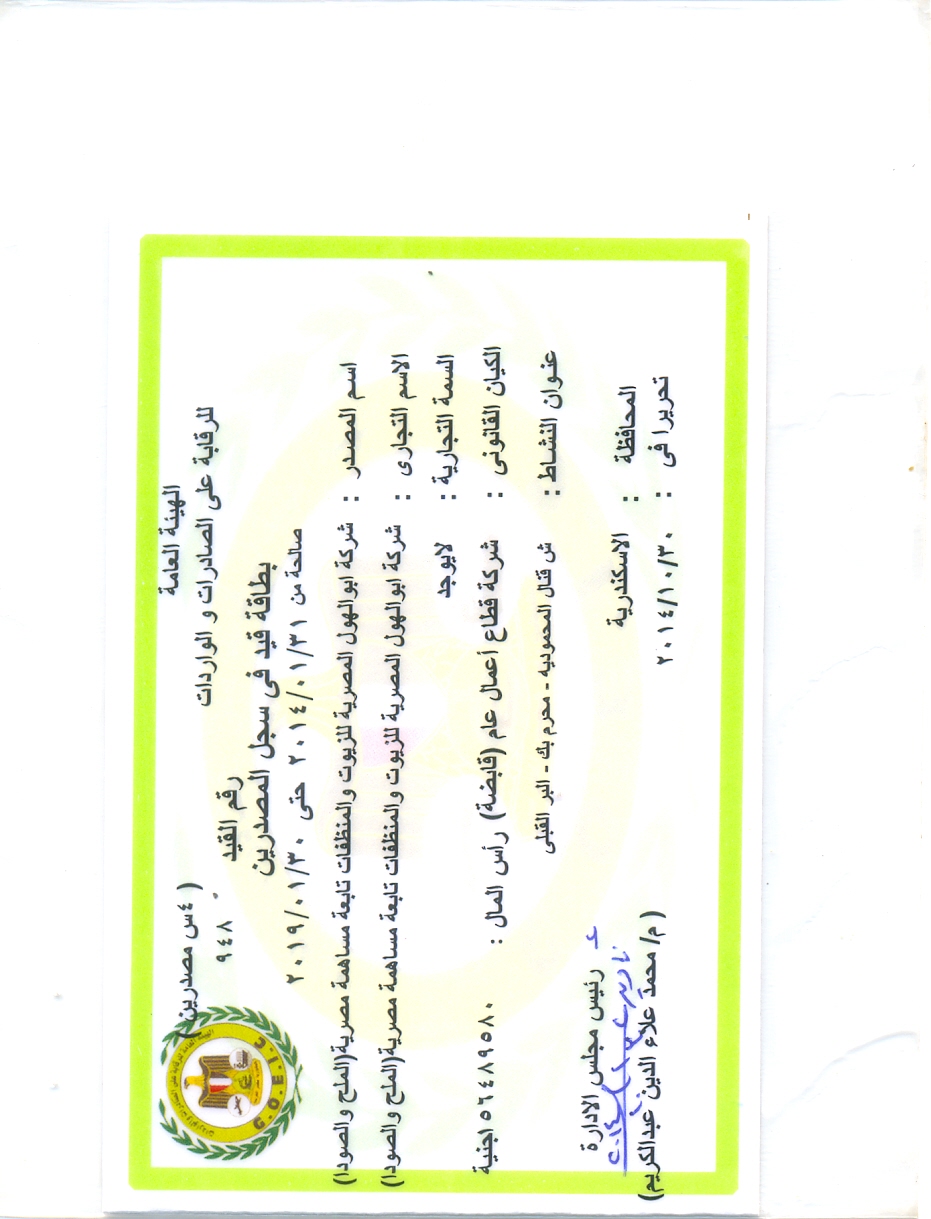 الهيئة العامة
للرقابة على الصادرات و الواردات
( ٤س مصدرين )
رقم القيد ٩٤٨
بطاقة قيد فى سجل المصدرين
صالحة من ٢٠١٤/٠١/٣١ حتى ٢٠١٩/٠١/٣٠
اسم المصدر : شركة ابوالهول المصرية للزيوت والمنظفات تابعة مساهمة مصرية(الملح والصودا)
الاسم التجارى : شركة ابوالهول المصرية للزيوت والمنظفات تابعة مساهمة مصرية(الملح والصودا)
السمة التجارية : لايوجد
الكيان القانونى : شركة قطاع أعمال عام (قابضة) رأس المال : ٥٦٤٨٩٥٨٠ اجنية
عنوان النشاط : ش قنال المحموديه - محرم بك - البر القبلى
المحافظة : الاسكندرية
تحريرا فى : ٢٠١٤/١٠/٣٠
رئيس مجلس الادارة
(م/ محمد علاء الدين عبدالكريم)
G.O.E.I.C